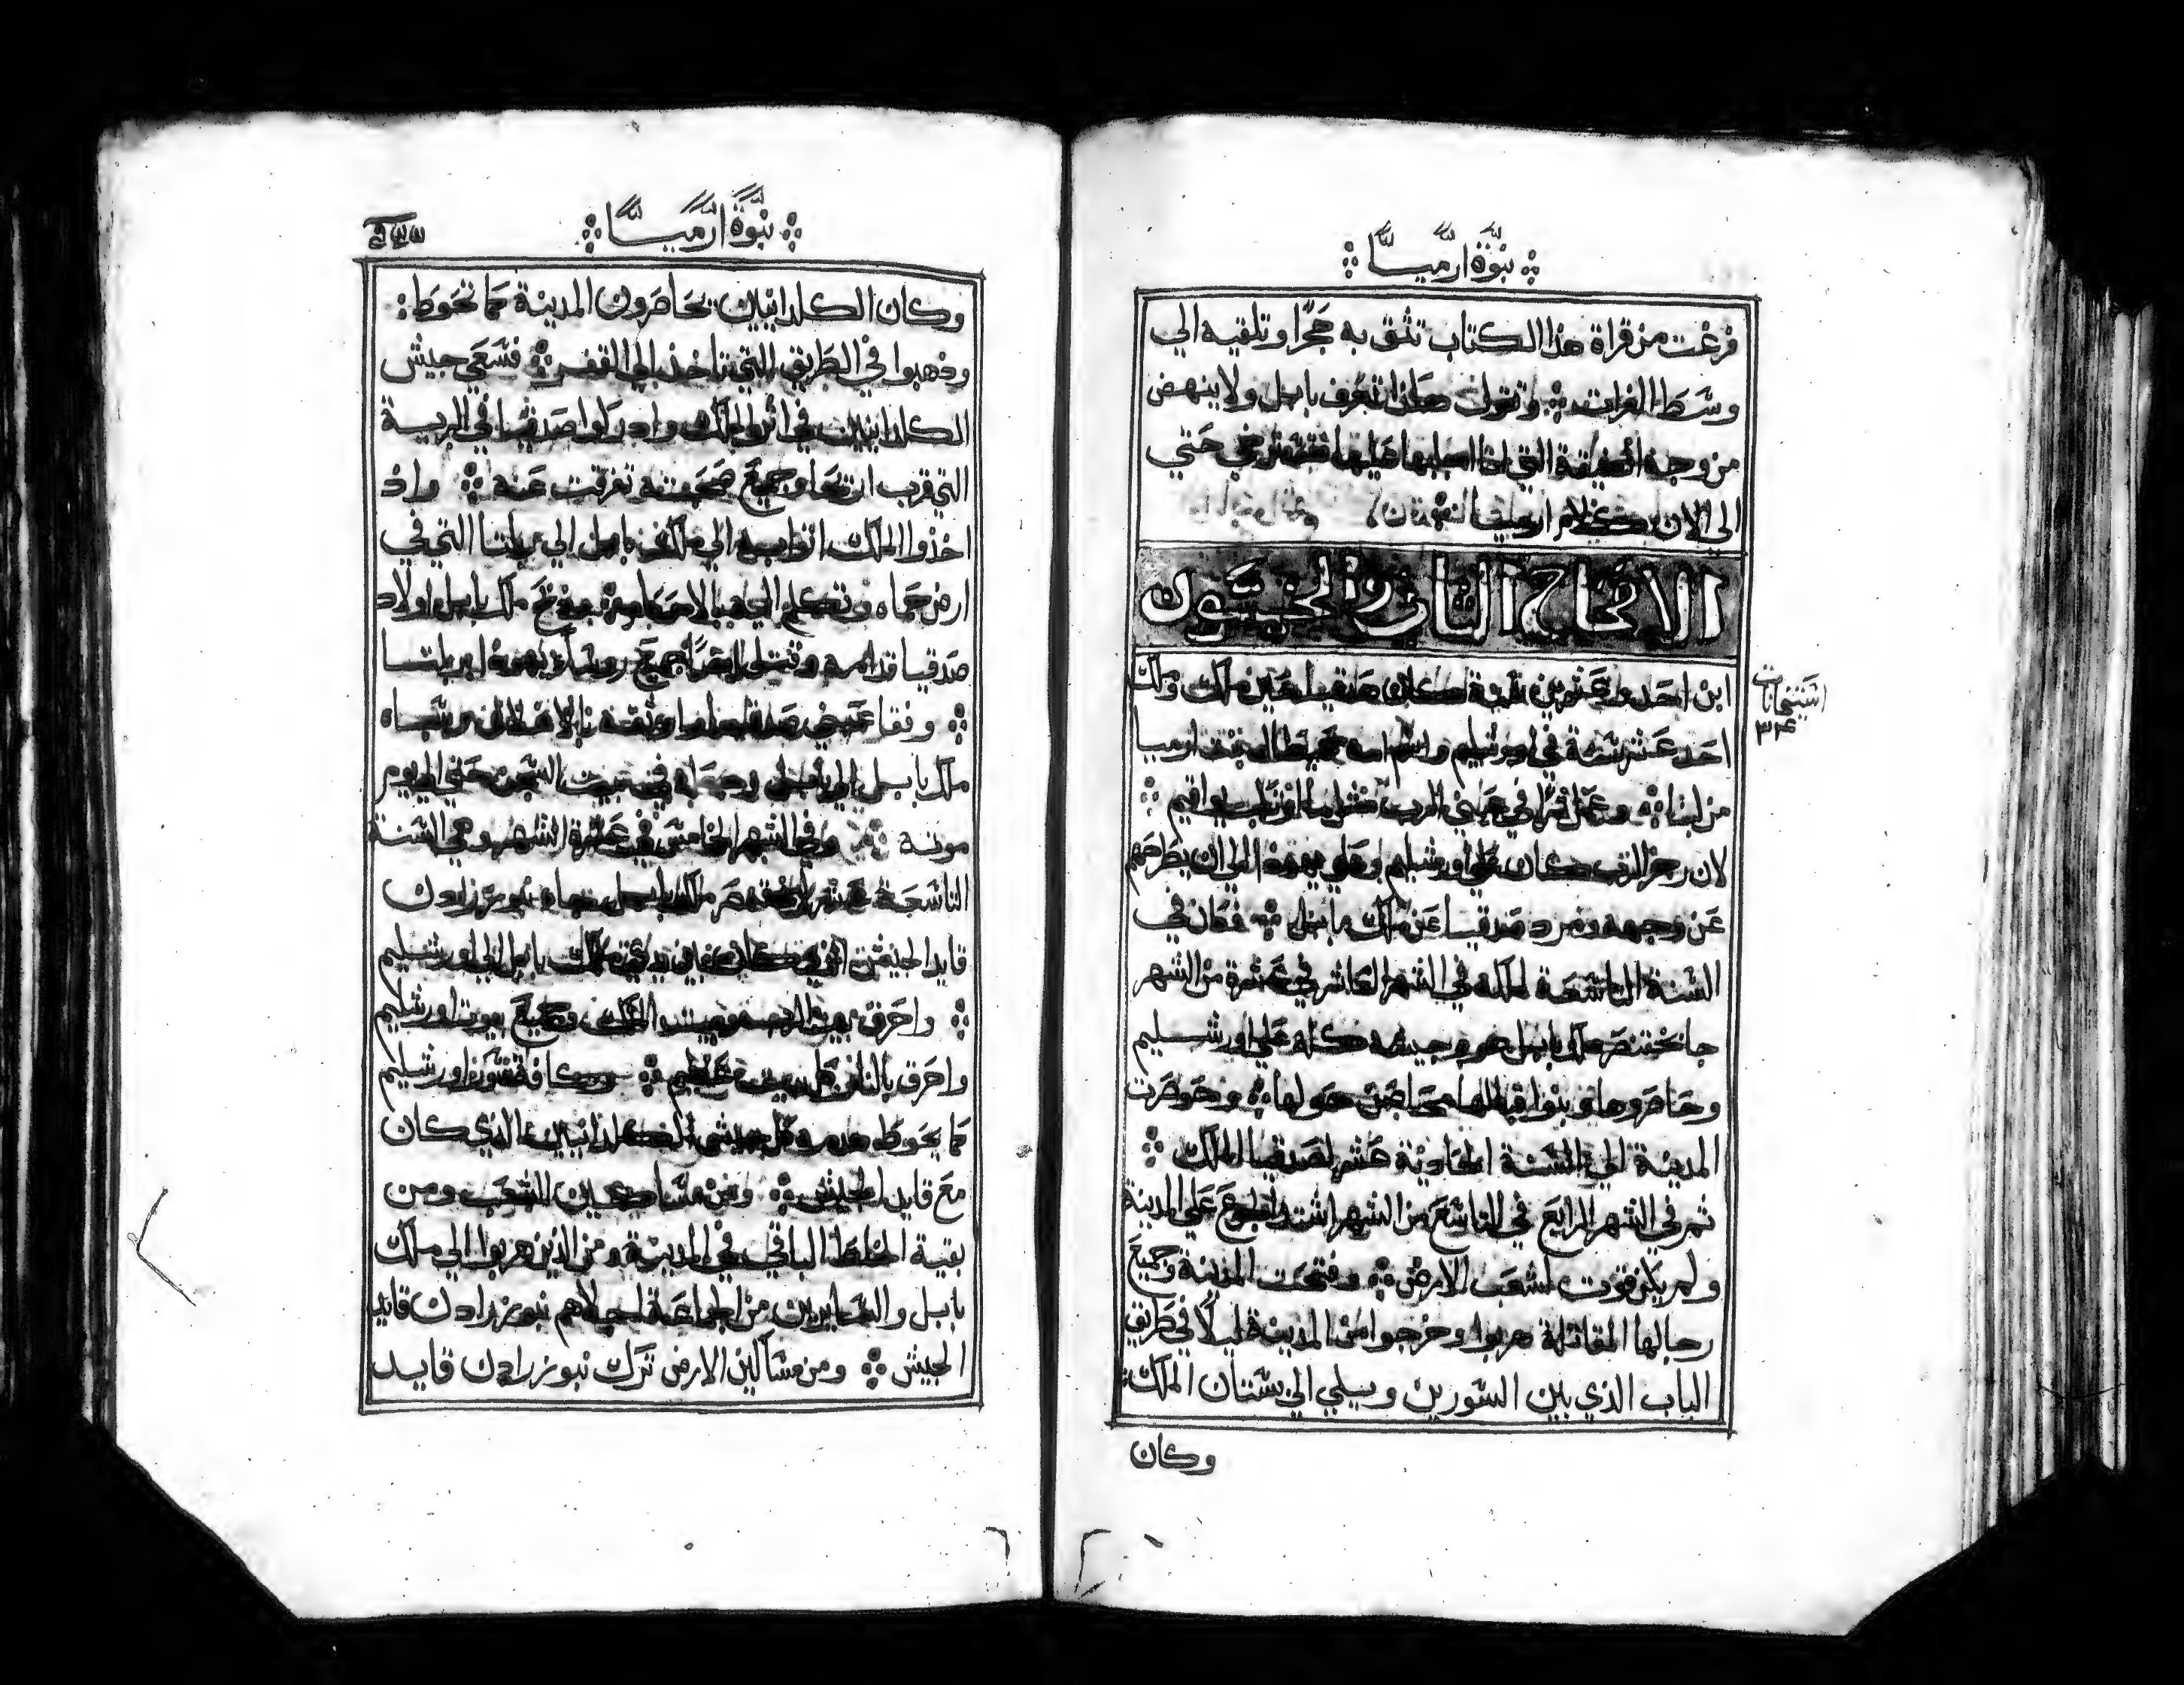 نبوة ارميا
فرغت من قراة هذا الكتاب تثق به حجرا وتلقيه الي
وسط الفرات وتقول هكذا تغرق بابل ولا ينهض
من وجه التي انا اجلبها عليها حتي
الي الان كلام ارميا
الاصحاح الثاني والخمسون
ابن احد وعشرين سنة كان صدقيا حين ملك وملك
احد عشر سنة في اورشليم واسم امه حميطال بنت ارميا
من لبنا وعمل شرا في عيني الرب يواقيم
لان رجز الرب كان علي اورشليم وعلي يهودا الي ان يطرحهم
عن وجهه ومرد صدقيا عن ملك بابل فكان في
السنة التاسعة لملكه في الشهر العاشر في عشرة من الشهر
جا بختنصر ملك بابل هو وجيشه كله علي اورشليم
وحاصروها وبنوا قبالها محاصن حولها وحوصرت
المدينة الي السنة الحادية عشر لصدقيا الملك
ثم في الشهر الرابع في التاسع من الشهر اشتد الجوع علي المدينة
ولم يكن قوت لشعب الارض وفتحت المدينة وجميع
رجالها المقاتلة هربوا وخرجوا من المدينة ليلا في طريق
الباب الذي بين السورين ويلي الي بستان الملك
وكان
نبوة ارميا
وكان الكلدانيين يحاصرون المدينة كما تحوط
وذهبوا في الطريق التي تاخذ الي القفر فسعي جيش
الكلدانيين في اثر الملك وادركوا صدقيا في البرية
التي قرب اريحا وجميع صحبته تفرقت عنه واذ
اخذوا الملك اتوا به الي ملك بابل الي ربلتا التي في
ارض حماه وتكلم اليه بالاحكام وذبح ملك بابل اولاد
صدقيا قدامه وقتل ايضا جميع روسا يهودا في ربلتا
وفقا عيني صدقيا واوثقه
ملك بابل الي بابل وجعله في بيت السجن حتي الي يوم
موته وفي الشهر الخامس في عشرة الشهر وهي السنة
التاسعة عشر لبختنصر ملك بابل جاه نبوزرادن
قايد الجيش الذي كان ملك بابل الي اورشليم
واحرق بيت الرب وبيت الملك وجميع بيوت اورشليم
واحرق بالنار كل بيت عظيم وكافة سور اورشليم
كما يحوط هدمه كل جيش الكلدانيين الذي كان
مع قايد الجيش ومن مساكين الشعب ومن
بقية الخلط الباقي في المدينة ومن الذين هربوا الي ملك
بابل والباقيين من الجماعة اجلاهم نبوزرادن قايد
الجيش ومن مساكين الارض ترك نبوزرادن قايد